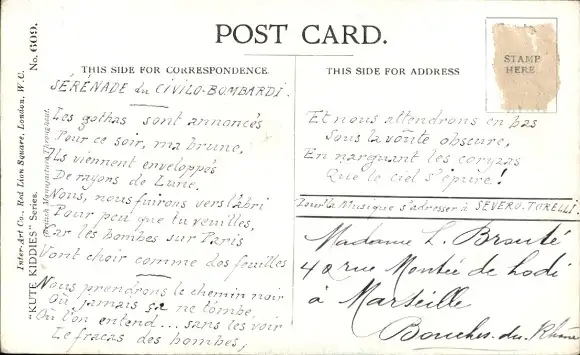 POST CARD.
THIS SIDE FOR CORRESPONDENCE.
THIS SIDE FOR ADDRESS
STAMP
HERE.
Inter-Art Co., Red Lion Square, London, W.C.
"KUTE KIDDIES" Series. No. 609.
British Manufacture Throughout.
SÉRÉNADE du CIVILO-BOMBARDÉ.
Les gothas sont annoncés
Pour ce soir, ma brune,
Ils viennent enveloppés
De rayons de Lune.
Nous, nous fuirons vers l'abri
Pour peu que tu veuilles,
Car les bombes sur Paris
Vont choir comme des feuilles
Nous prendrons le chemin noir
Où jamais ça ne tombe,
Où l'on entend... sans les voir
Le fracas des bombes;
Et nous attendrons en bas
Sous la voûte obscure,
En narguant les coryzas
Que le ciel s'épure!
Pour la Musique s'adresser à SEVERO TORELLI.
Madame L. Brouté
42 rue Montée de Lodi
à Marseille
Bouches-du-Rhône